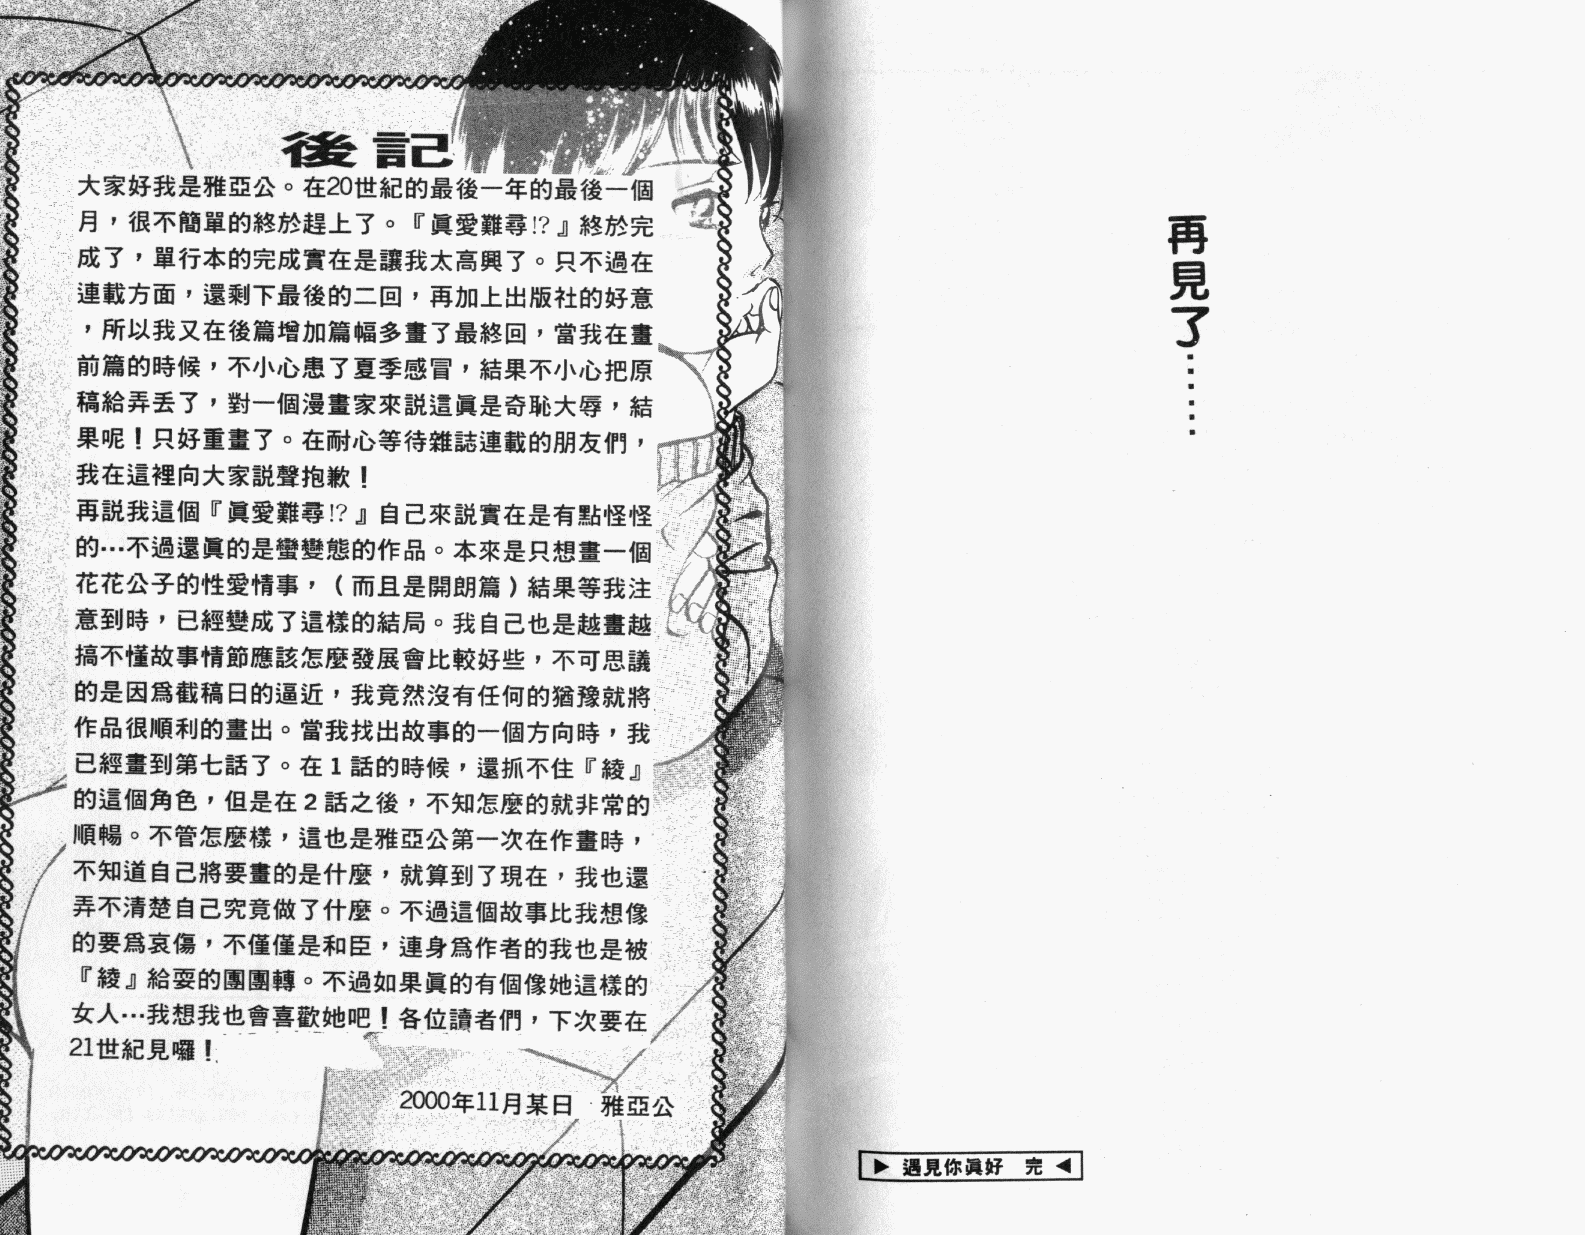 再見了……
▶ 遇見你眞好　完 ◀
後記
大家好我是雅亞公。在20世紀的最後一年的最後一個
月，很不簡單的終於趕上了。『眞愛難尋!?』終於完
成了，單行本的完成實在是讓我太高興了。只不過在
連載方面，還剩下最後的二回，再加上出版社的好意
，所以我又在後篇增加篇幅多畫了最終回，當我在畫
前篇的時候，不小心患了夏季感冒，結果不小心把原
稿給弄丟了，對一個漫畫家來説這眞是奇恥大辱，結
果呢！只好重畫了。在耐心等待雜誌連載的朋友們，
我在這裡向大家説聲抱歉！
再説我這個『眞愛難尋!?』自己來説實在是有點怪怪
的…不過還眞的是蠻變態的作品。本來是只想畫一個
花花公子的性愛情事，（而且是開朗篇）結果等我注
意到時，已經變成了這樣的結局。我自己也是越畫越
搞不懂故事情節應該怎麼發展會比較好些，不可思議
的是因爲截稿日的逼近，我竟然沒有任何的猶豫就將
作品很順利的畫出。當我找出故事的一個方向時，我
已經畫到第七話了。在1話的時候，還抓不住『綾』
的這個角色，但是在2話之後，不知怎麼的就非常的
順暢。不管怎麼樣，這也是雅亞公第一次在作畫時，
不知道自己將要畫的是什麼，就算到了現在，我也還
弄不清楚自己究竟做了什麼。不過這個故事比我想像
的要爲哀傷，不僅僅是和臣，連身爲作者的我也是被
『綾』給耍的團團轉。不過如果眞的有個像她這樣的
女人…我想我也會喜歡她吧！各位讀者們，下次要在
21世紀見囉！
2000年11月某日　雅亞公